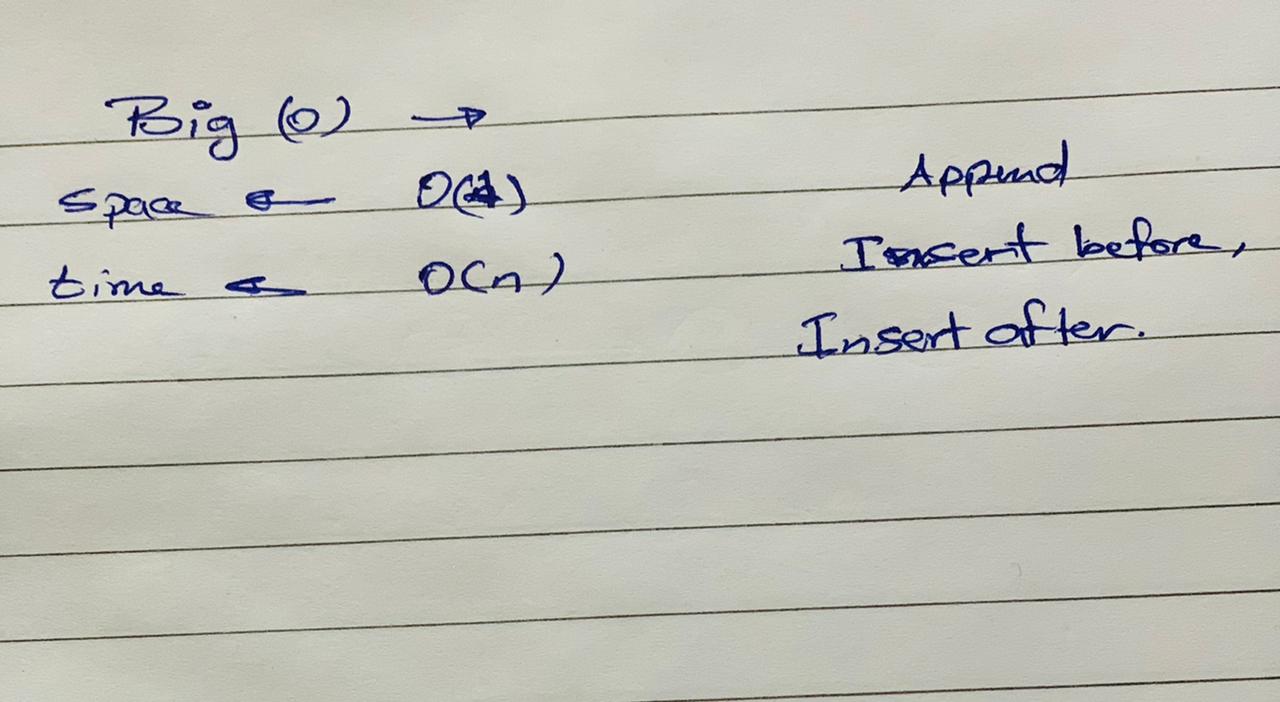 Big (O) →
space ← O(1)
time ← O(n)
Append
Insert before,
Insert after.